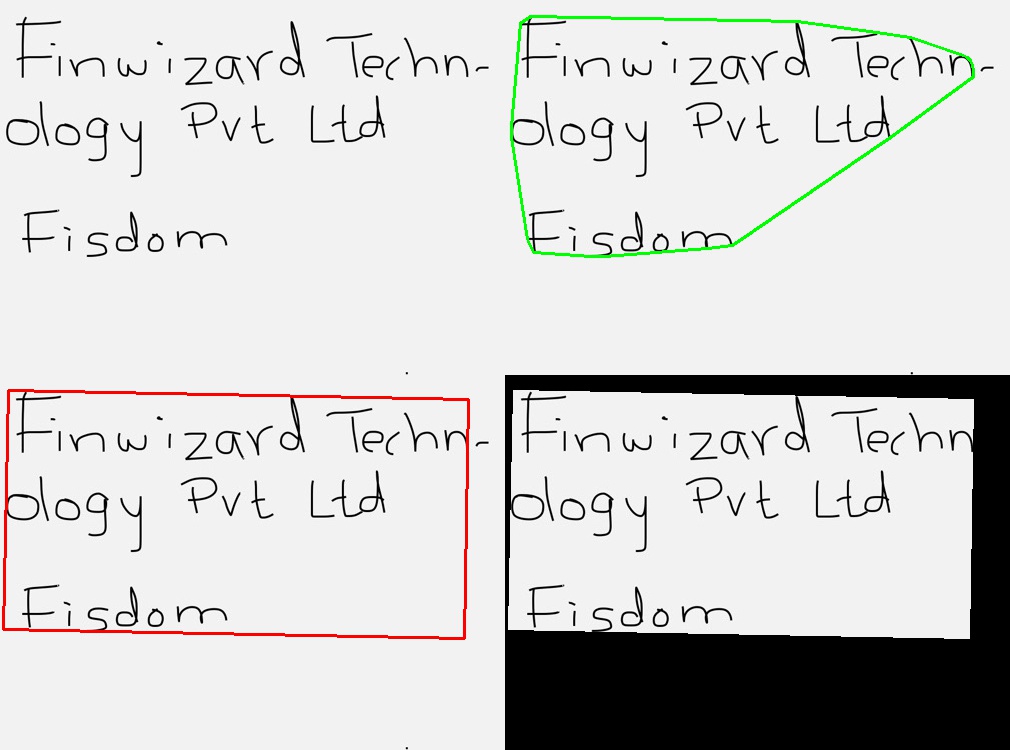 Finwizard Techn-
ology Pvt Ltd
Fisdom
Finwizard Techn-
ology Pvt Ltd
Fisdom
Finwizard Techn-
ology Pvt Ltd
Fisdom
Finwizard Techn
ology Pvt Ltd
Fisdom